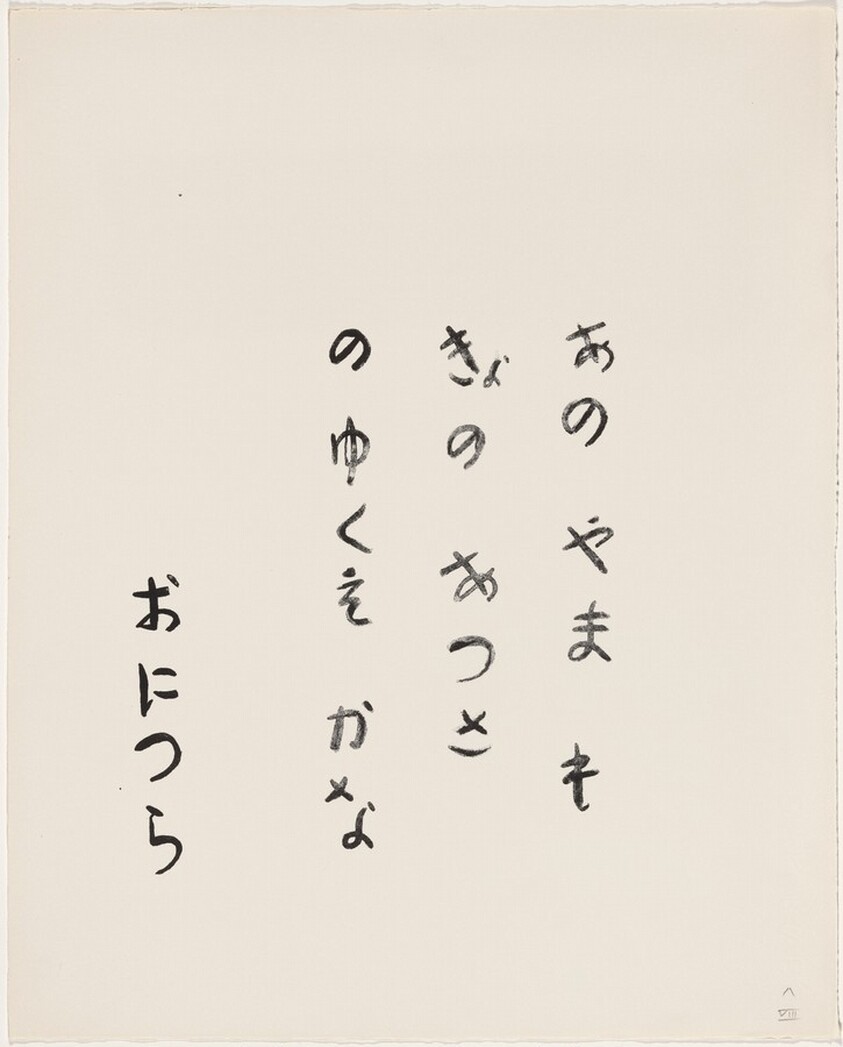 あの やま も
きょの あつさ
の ゆくえ かな
おにつら
VIII